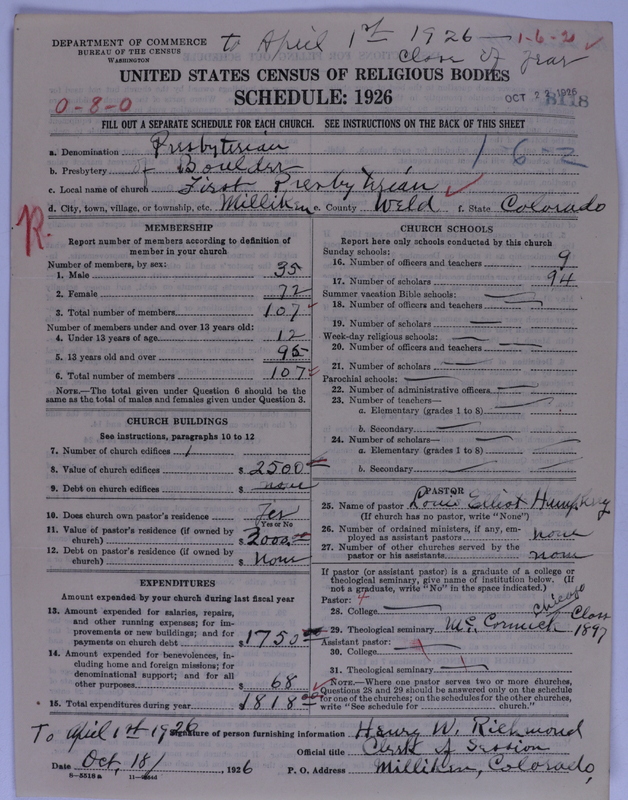 to April 1st 1926 — 1-6-2
Close of Year
DEPARTMENT OF COMMERCE
BUREAU OF THE CENSUS
WASHINGTON
UNITED STATES CENSUS OF RELIGIOUS BODIES
SCHEDULE: 1926
OCT 22 1926
8118
0-8-0
FILL OUT A SEPARATE SCHEDULE FOR EACH CHURCH. SEE INSTRUCTIONS ON THE BACK OF THIS SHEET
a. Denomination Presbyterian
1 6-2
b. Presbytery of Boulder
c. Local name of church First Presbyterian
d. City, town, village, or township, etc. Milliken e. County Weld f. State Colorado
R.
MEMBERSHIP
Report number of members according to definition of
member in your church
Number of members, by sex:
1. Male 35
2. Female 72
3. Total number of members 107
Number of members under and over 13 years old:
4. Under 13 years of age 12
5. 13 years old and over 95
6. Total number of members 107
NOTE.—The total given under Question 6 should be the
same as the total of males and females given under Question 3.
CHURCH BUILDINGS
See instructions, paragraphs 10 to 12
7. Number of church edifices 1
8. Value of church edifices $ 2500
9. Debt on church edifices $ none
10. Does church own pastor's residence Yes
(Yes or No)
11. Value of pastor's residence (if owned by
church) $ 2000
12. Debt on pastor's residence (if owned by
church) $ None
EXPENDITURES
Amount expended by your church during last fiscal year
13. Amount expended for salaries, repairs,
and other running expenses; for im-
provements or new buildings; and for
payments on church debt $ 1750
14. Amount expended for benevolences, in-
cluding home and foreign missions; for
denominational support; and for all
other purposes $ 68
15. Total expenditures during year $ 1818
CHURCH SCHOOLS
Report here only schools conducted by this church
Sunday schools:
16. Number of officers and teachers 9
17. Number of scholars 94
Summer vacation Bible schools:
18. Number of officers and teachers
19. Number of scholars
Week-day religious schools:
20. Number of officers and teachers
21. Number of scholars
Parochial schools:
22. Number of administrative officers
23. Number of teachers—
a. Elementary (grades 1 to 8)
b. Secondary
24. Number of scholars—
a. Elementary (grades 1 to 8)
b. Secondary
PASTOR
25. Name of pastor Louis Elliot Humphrey
(If church has no pastor, write "None")
26. Number of ordained ministers, if any, em-
ployed as assistant pastors none
27. Number of other churches served by the
pastor or his assistants none
If pastor (or assistant pastor) is a graduate of a college or
theological seminary, give name of institution below. (If
not a graduate, write "No" in the space indicated.)
Pastor: 4
28. College
Chicago
29. Theological seminary McCormick Class
1897
Assistant pastor:
30. College
31. Theological seminary
NOTE.—Where one pastor serves two or more churches,
Questions 28 and 29 should be answered only on the schedule
for one of the churches; on the schedules for the other churches,
write "See schedule for church."
To April 1st 1926
Signature of person furnishing information Henry W. Richmond
Official title Clerk of Session
Date Oct, 18/, 1926 P. O. Address Milliken, Colorado,
8—5518 a